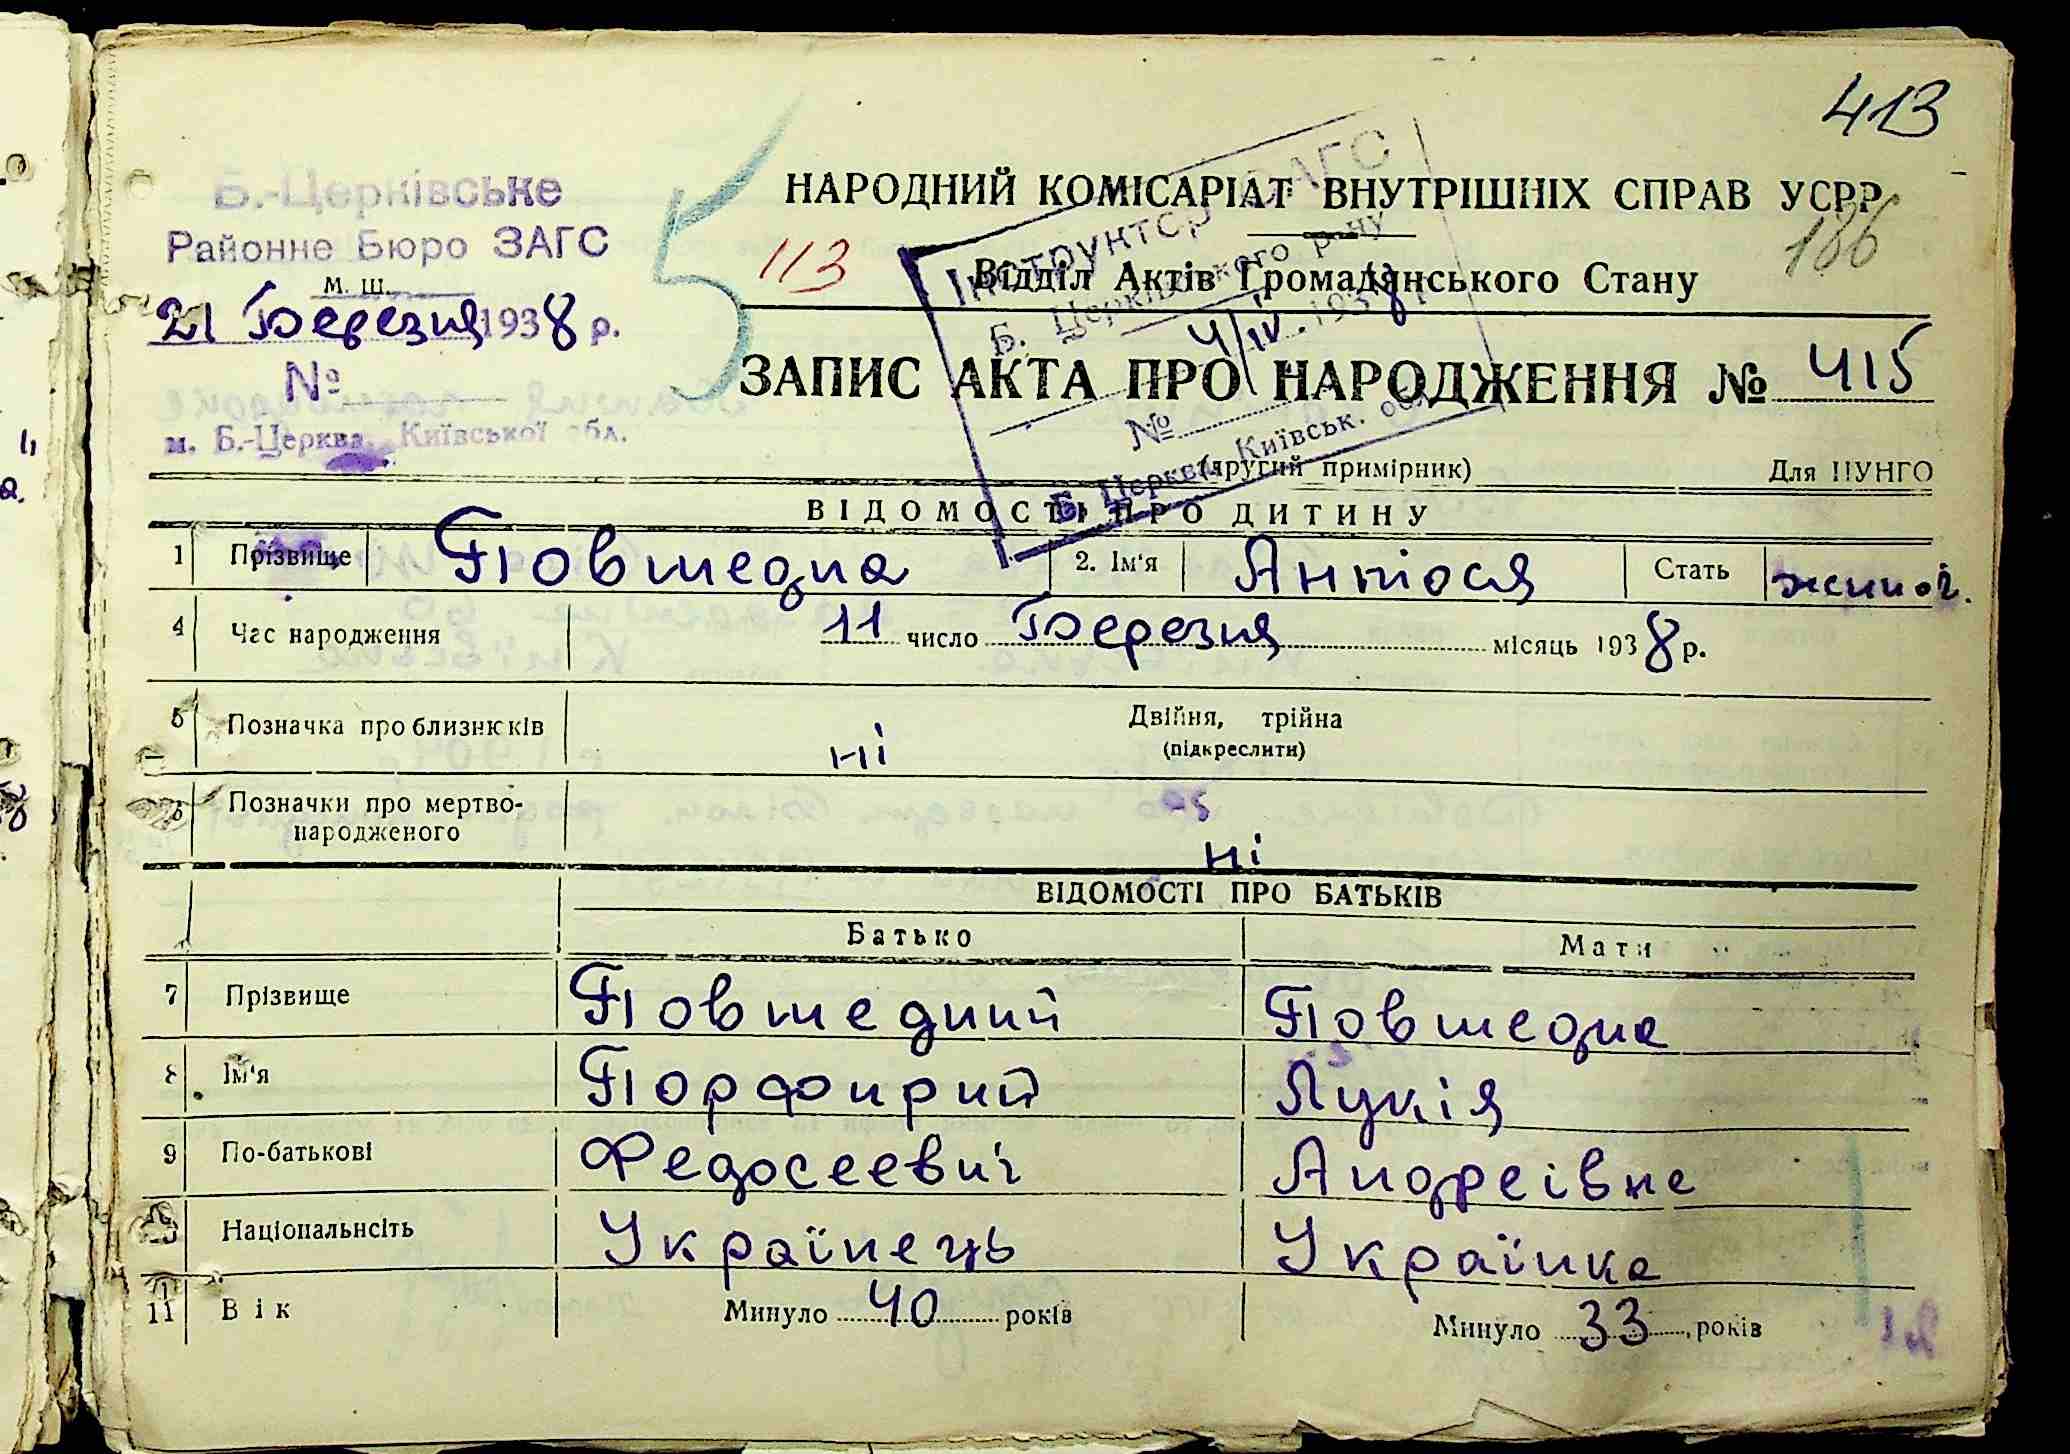 413
Б.-Церківське
Районне Бюро ЗАГС
м. ш.
21 Березня 1938 р.
№
м. Б.-Церква, Київської обл.
5
113
НАРОДНИЙ КОМІСАРІАТ ВНУТРІШНІХ СПРАВ УСРР
186
Відділ Актів Громадянського Стану
Інструктор ЗАГС
Б. Церківського р-ну
4/IV 1938 р.
№
Б. Церква, Київськ. обл.
ЗАПИС АКТА ПРО НАРОДЖЕННЯ № 415
(другий примірник) Для ЦУНГО
ВІДОМОСТІ ПРО ДИТИНУ
1 Прізвище Повшедна 2. Ім'я Антося Стать жіноч.
4 Час народження 11 число Березня місяць 1938 р.
5 Позначка про близнюків ні Двійня, трійна
(підкреслити)
6 Позначки про мертво-
народженого ні
ВІДОМОСТІ ПРО БАТЬКІВ
Батько Мати
7 Прізвище Повшедний Повшедна
8 Ім'я Порфирий Лукія
9 По-батькові Федосеевич Андреівна
10 Національнсіть Українець Українка
11 Вік Минуло 40 років Минуло 33 років